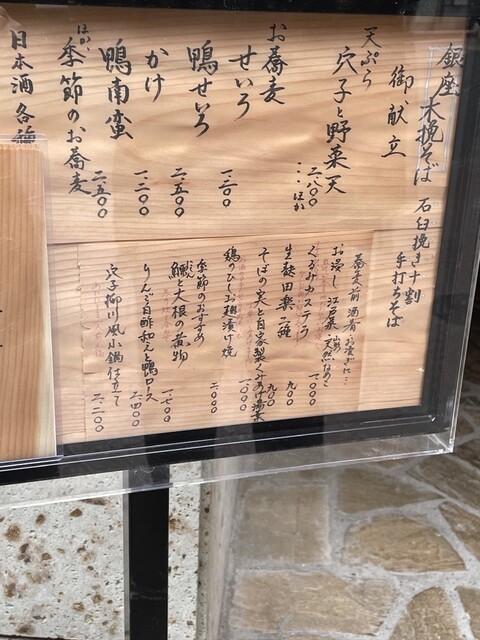 銀座 木挽そば
石臼挽き十割
手打ちそば
御献立
天ぷら
穴子と野菜天 二、八〇〇
…ほか
お蕎麦
せいろ 一、三〇〇
鴨せいろ 二、五〇〇
かけ 一、二〇〇
鴨南蛮 二、五〇〇
ほか、
季節のお蕎麦
日本酒 各種
蕎麦前 酒肴
お浸し 江戸菜 天然なめこ 一、〇〇〇
くるみカステラ 九〇〇
生麩田楽二種 九〇〇
そばの実と自家製くみあげ湯葉 一、〇〇〇
鶏のひしお麹漬け焼 二、〇〇〇
季節のおすすめ
鰤と大根の煮物 一、七〇〇
りんご白酢和えと鴨ロース 二、四〇〇
穴子柳川風小鍋仕立て 二、二〇〇